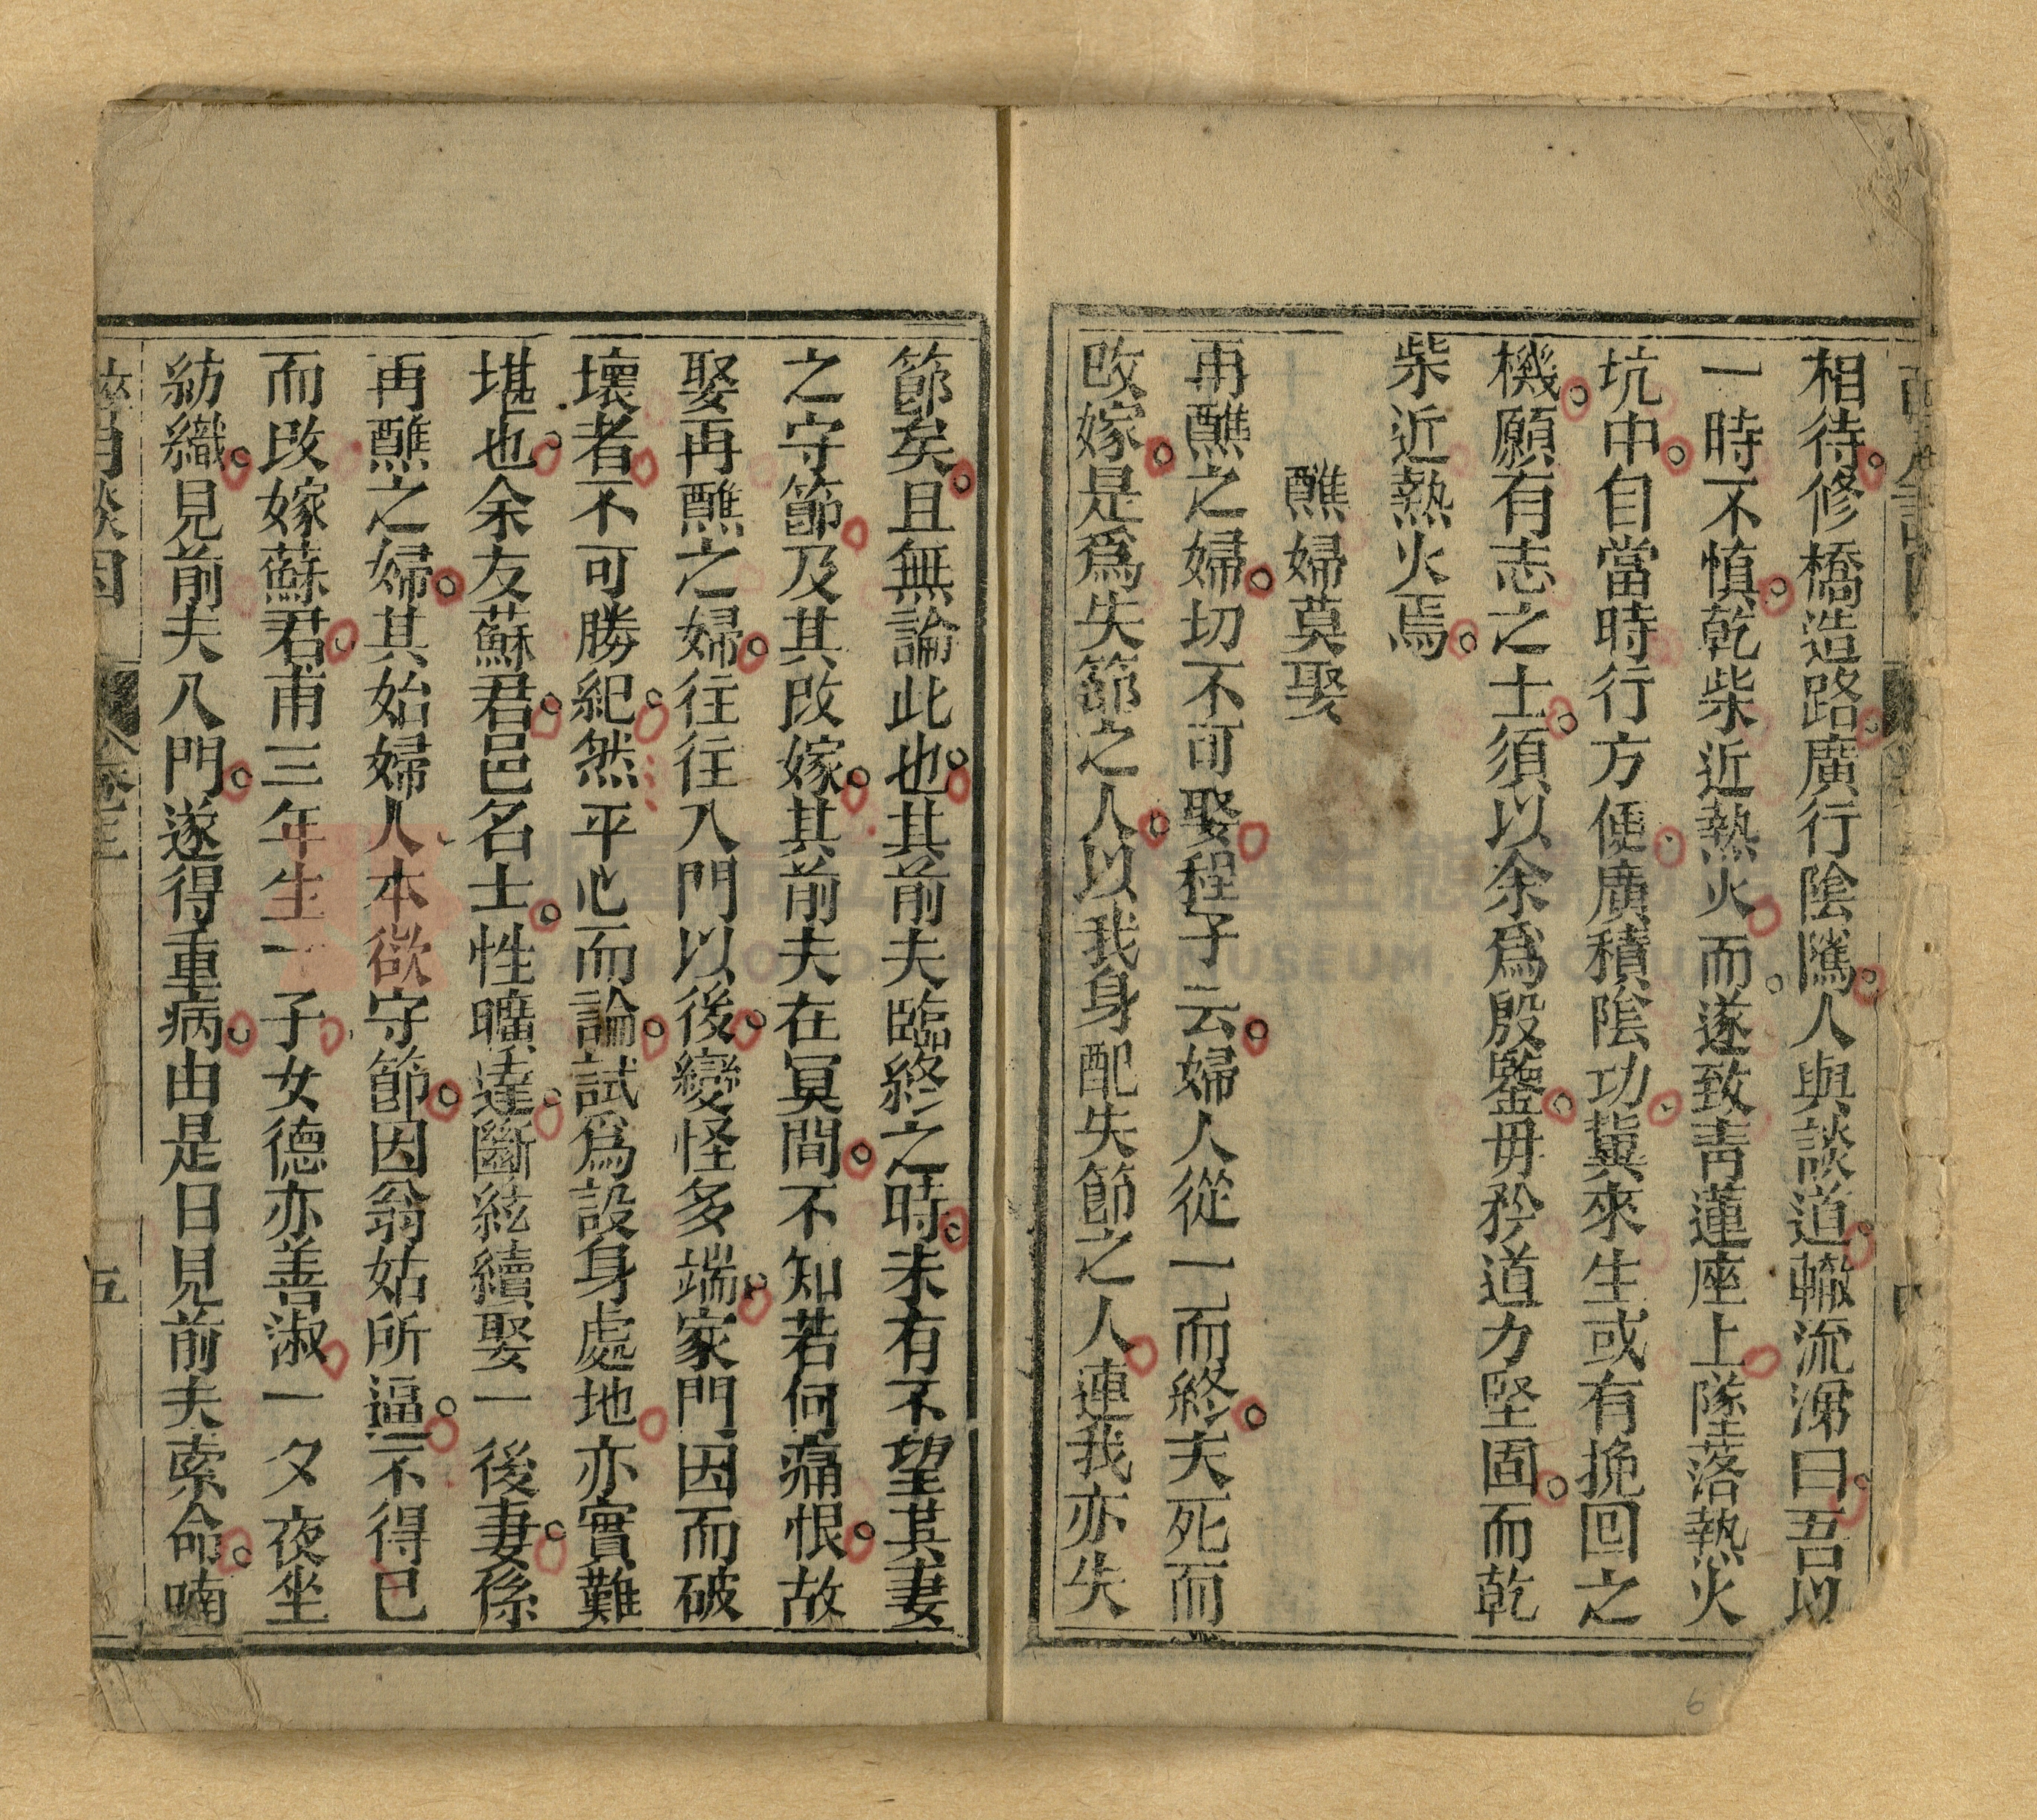 相待修橋造路廣行陰隲人與談道輙流涕曰吾以
一時不慎乾柴近熱火而遂致青蓮座上墜落熱火
坑中自當時行方便廣積陰功冀來生或有挽回之
機願有志之士須以余爲殷鑒毋矜道力堅固而乾
柴近熱火焉
醮婦莫娶
再醮之婦切不可娶程子云婦人從一而終夫死而
改嫁是爲失節之人以我身配失節之人連我亦失
節矣且無論此也其前夫臨終之時未有不望其妻
之守節及其改嫁其前夫在冥間不知若何痛恨故
娶再醮之婦往往入門以後變怪多端家門因而破
壞者不可勝紀然平心而論試爲設身處地亦實難
堪也余友蘇君邑名士性曠達斷絃續娶一後妻係
再醮之婦其始婦人本欲守節因翁姑所逼不得已
而改嫁蘇君甫三年生一子女德亦善淑一夕夜坐
紡織見前夫入門遂得重病由是日見前夫索命喃
五